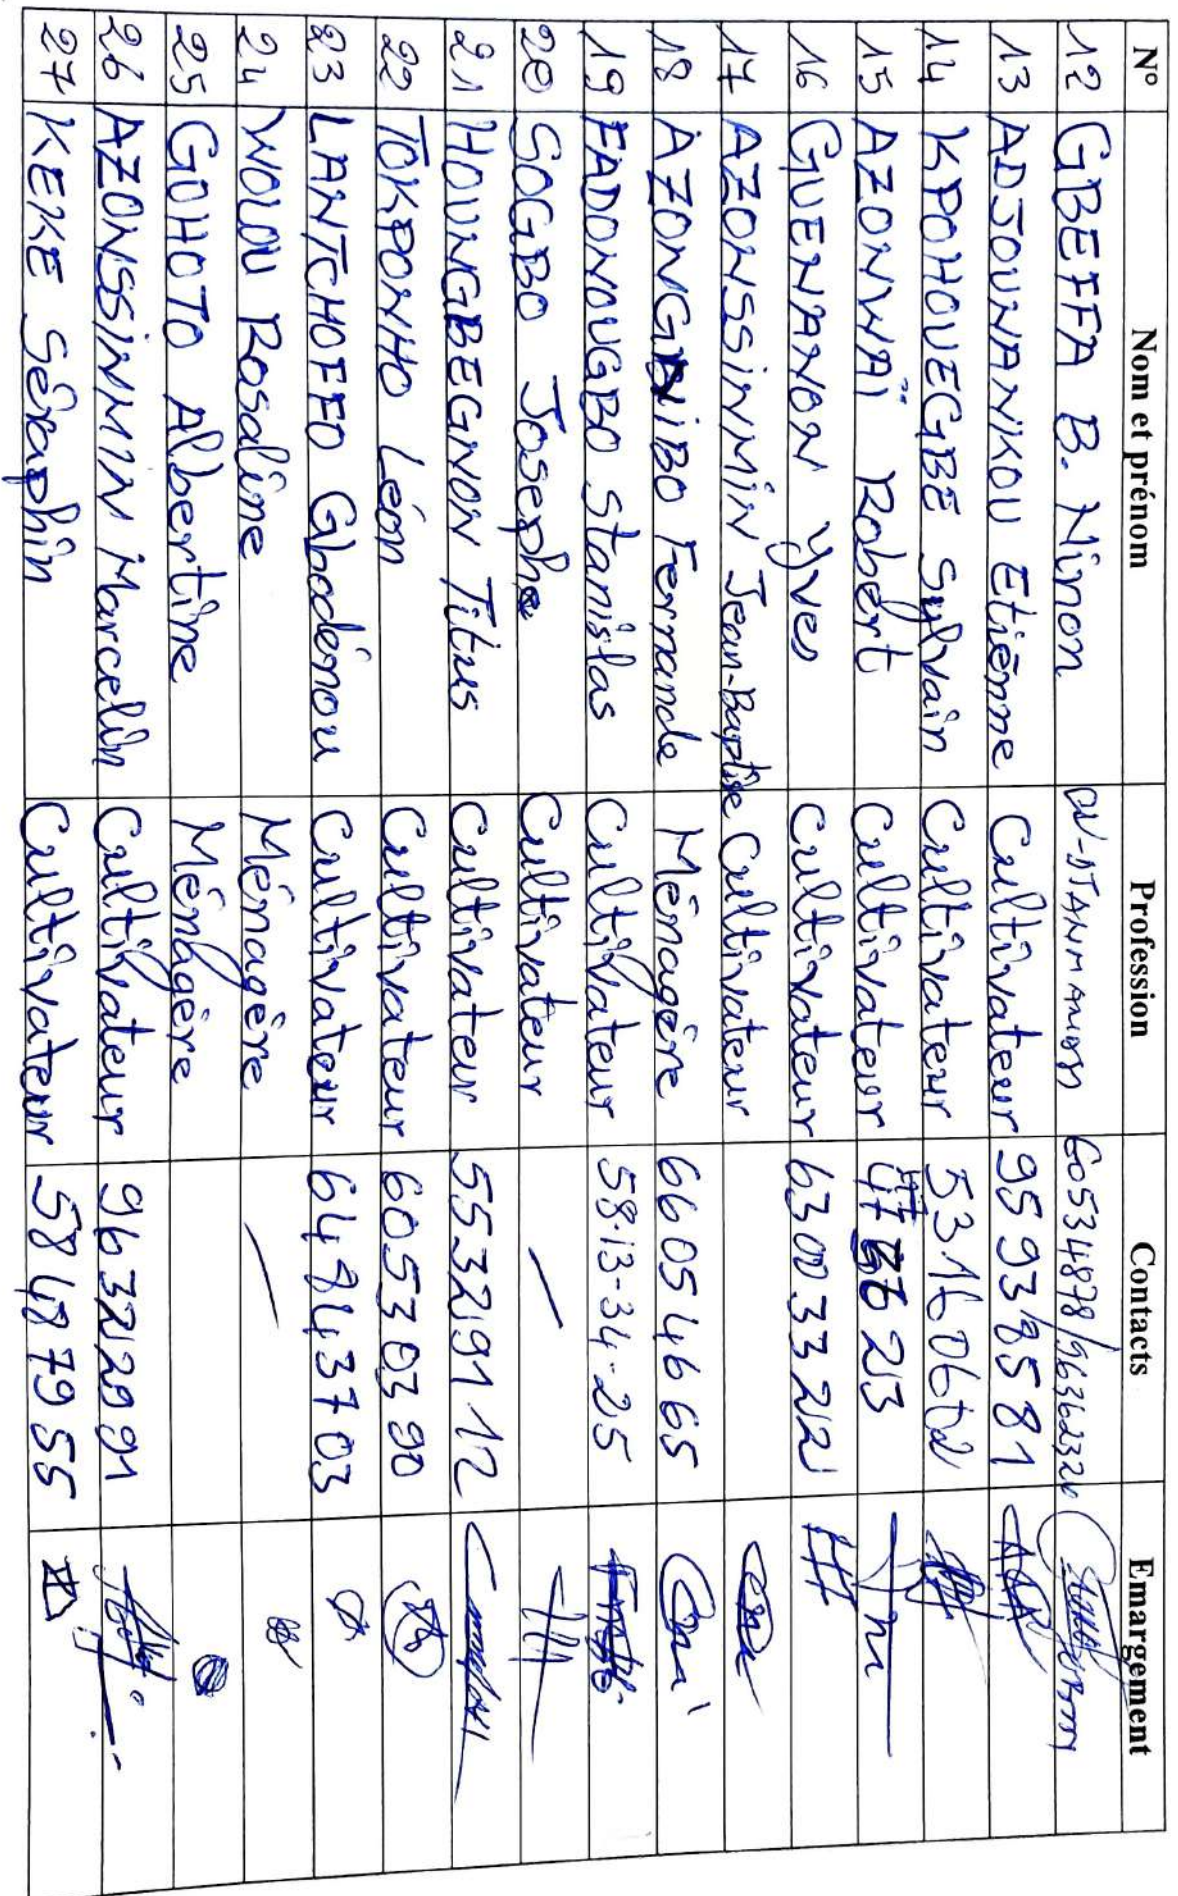 N° Nom et prénom Profession Contacts Emargement
12 GBEFFA B. Ninon 60534878/96362320
13 ADJOUNANIKOU Etiènne Cultivateur 95938581
14 KPOHOUEGBE Sylvain Cultivateur
15 AZONWAÏ Robert Cultivateur
16 GUENANON Yves Cultivateur 63003322
17 AZONSSINMIN Jean-Baptise Cultivateur
18 Fernande Ménagère 66054665
19 FADONOUGBO Stanislas Cultivateur 58-13-34-25
20 SOGBO Josephe Cultivateur —
21 HOUNGBEGNON Titus Cultivateur 55329112
22 TOKPONHO Léon Cultivateur 60530390
23 LANTCHOFFO Gbodénou Cultivateur 64843703
24 WOLOU Rosaline Ménagère —
25 GOHOTO Albertine Ménagère
26 AZONSSINMIN Marcelin Cultivateur 96322091
27 KEKE Séraphin Cultivateur 58487955